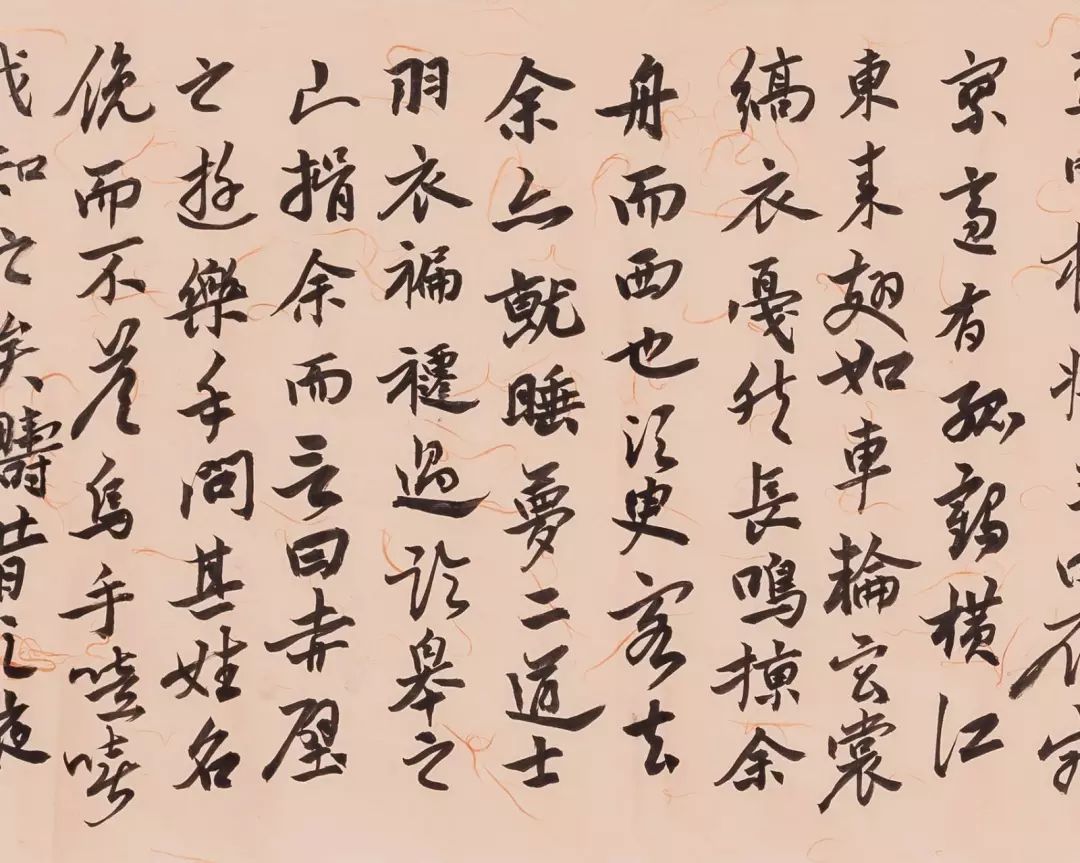 寥適有孤鶴橫江
東來翅如車輪玄裳
縞衣戛然長鳴掠余
舟而西也須臾客去
余亦就睡夢二道士
羽衣褊褼過臨皋之
下揖余而言曰赤壁
之遊樂乎問其姓名
俛而不答烏乎噫嘻
我知之矣疇昔之夜